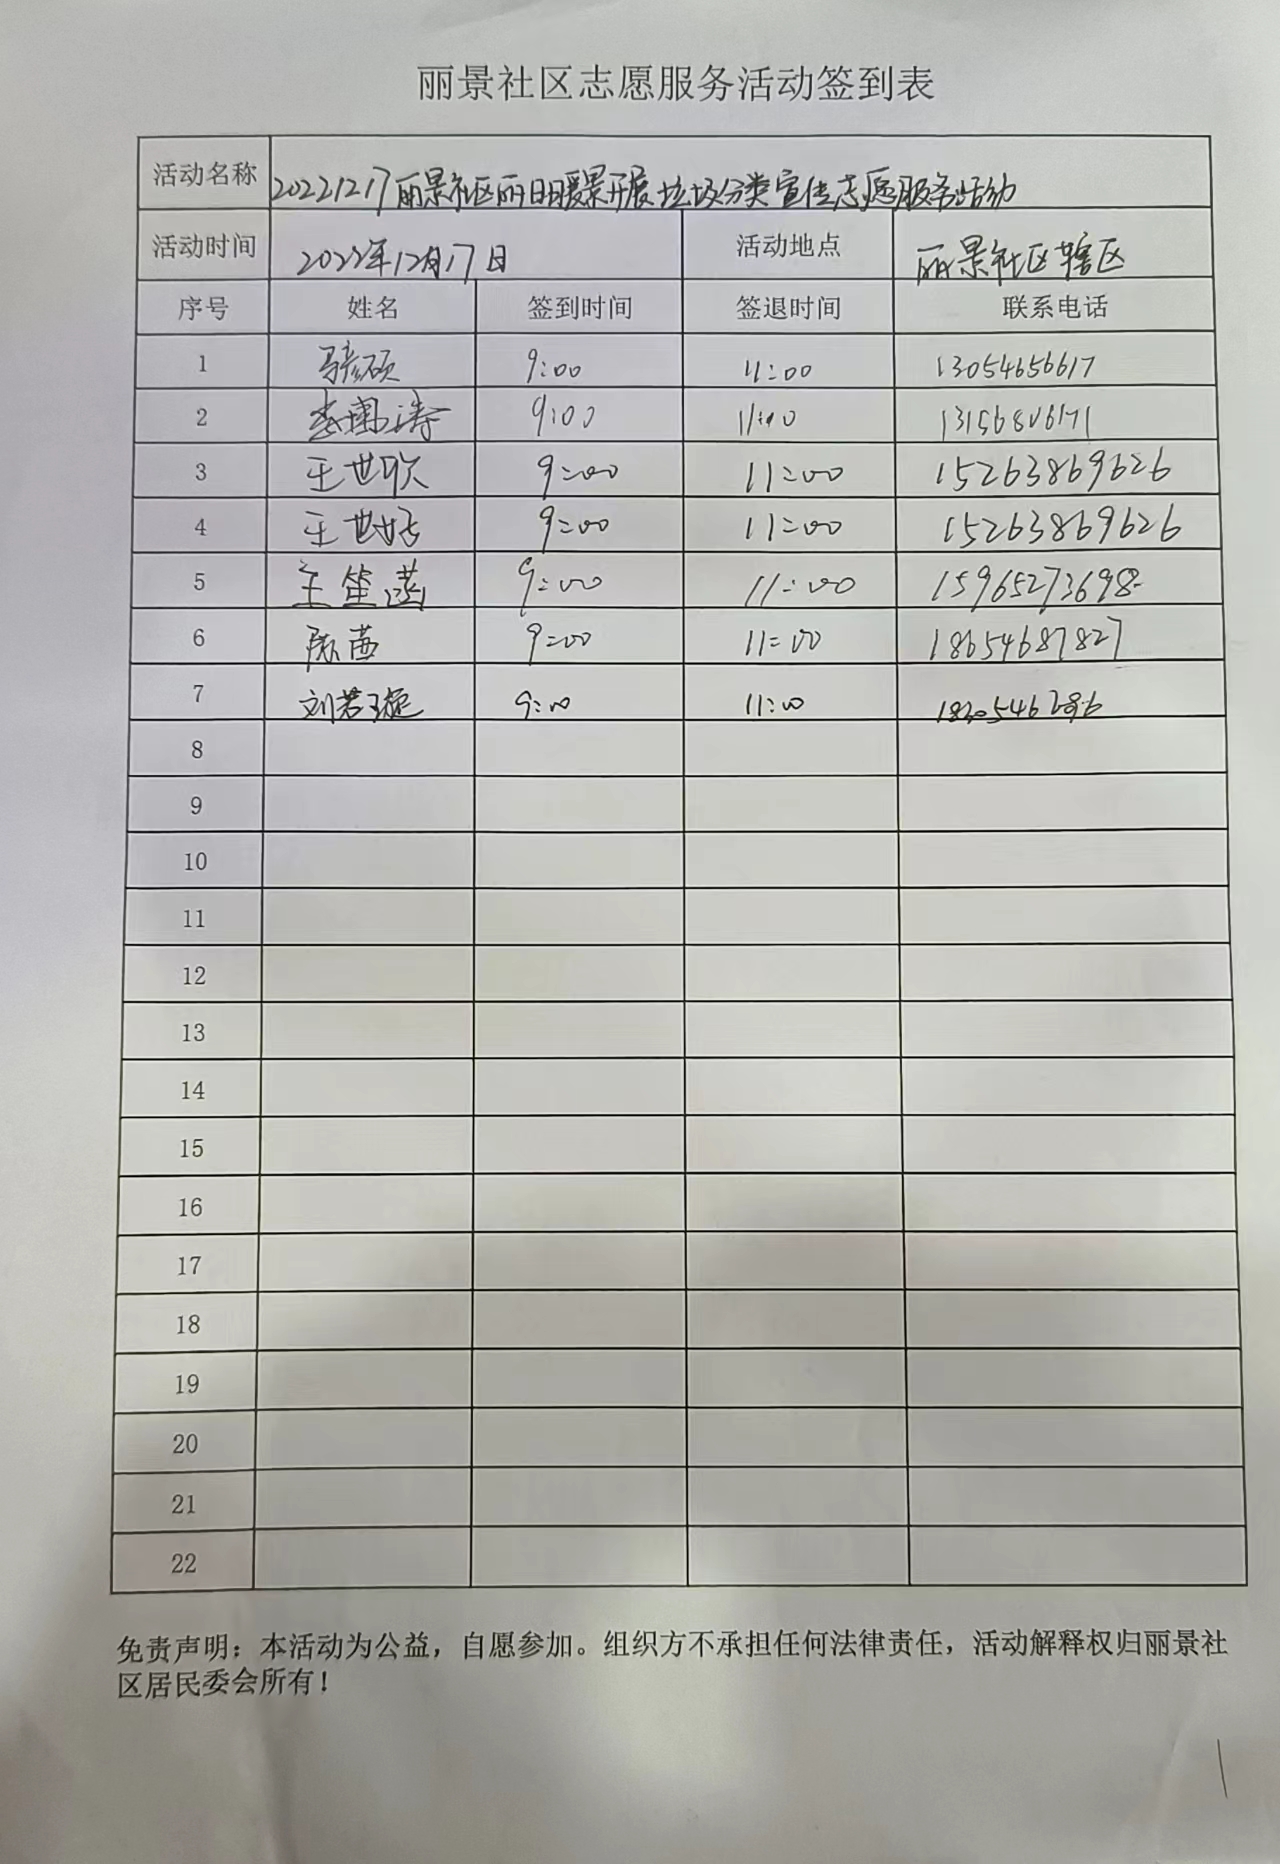 丽景社区志愿服务活动签到表
活动名称 20221217丽景社区丽日暖景开展垃圾分类宣传志愿服务活动
活动时间 2022年12月17日 活动地点 丽景社区辖区
序号 姓名 签到时间 签退时间 联系电话
1 硕 9:00 11:00 13054656617
2 李 涛 9:00 11:00 13156806171
3 王世欣 9:00 11:00 15263869626
4 王世 9:00 11:00 15263869626
5 王笙菡 9:00 11:00 15965273698
6 茜 9:00 11:00 18654687827
7 刘若璇 9:00 11:00
8
9
10
11
12
13
14
15
16
17
18
19
20
21
22
免责声明：本活动为公益，自愿参加。组织方不承担任何法律责任，活动解释权归丽景社
区居民委会所有！